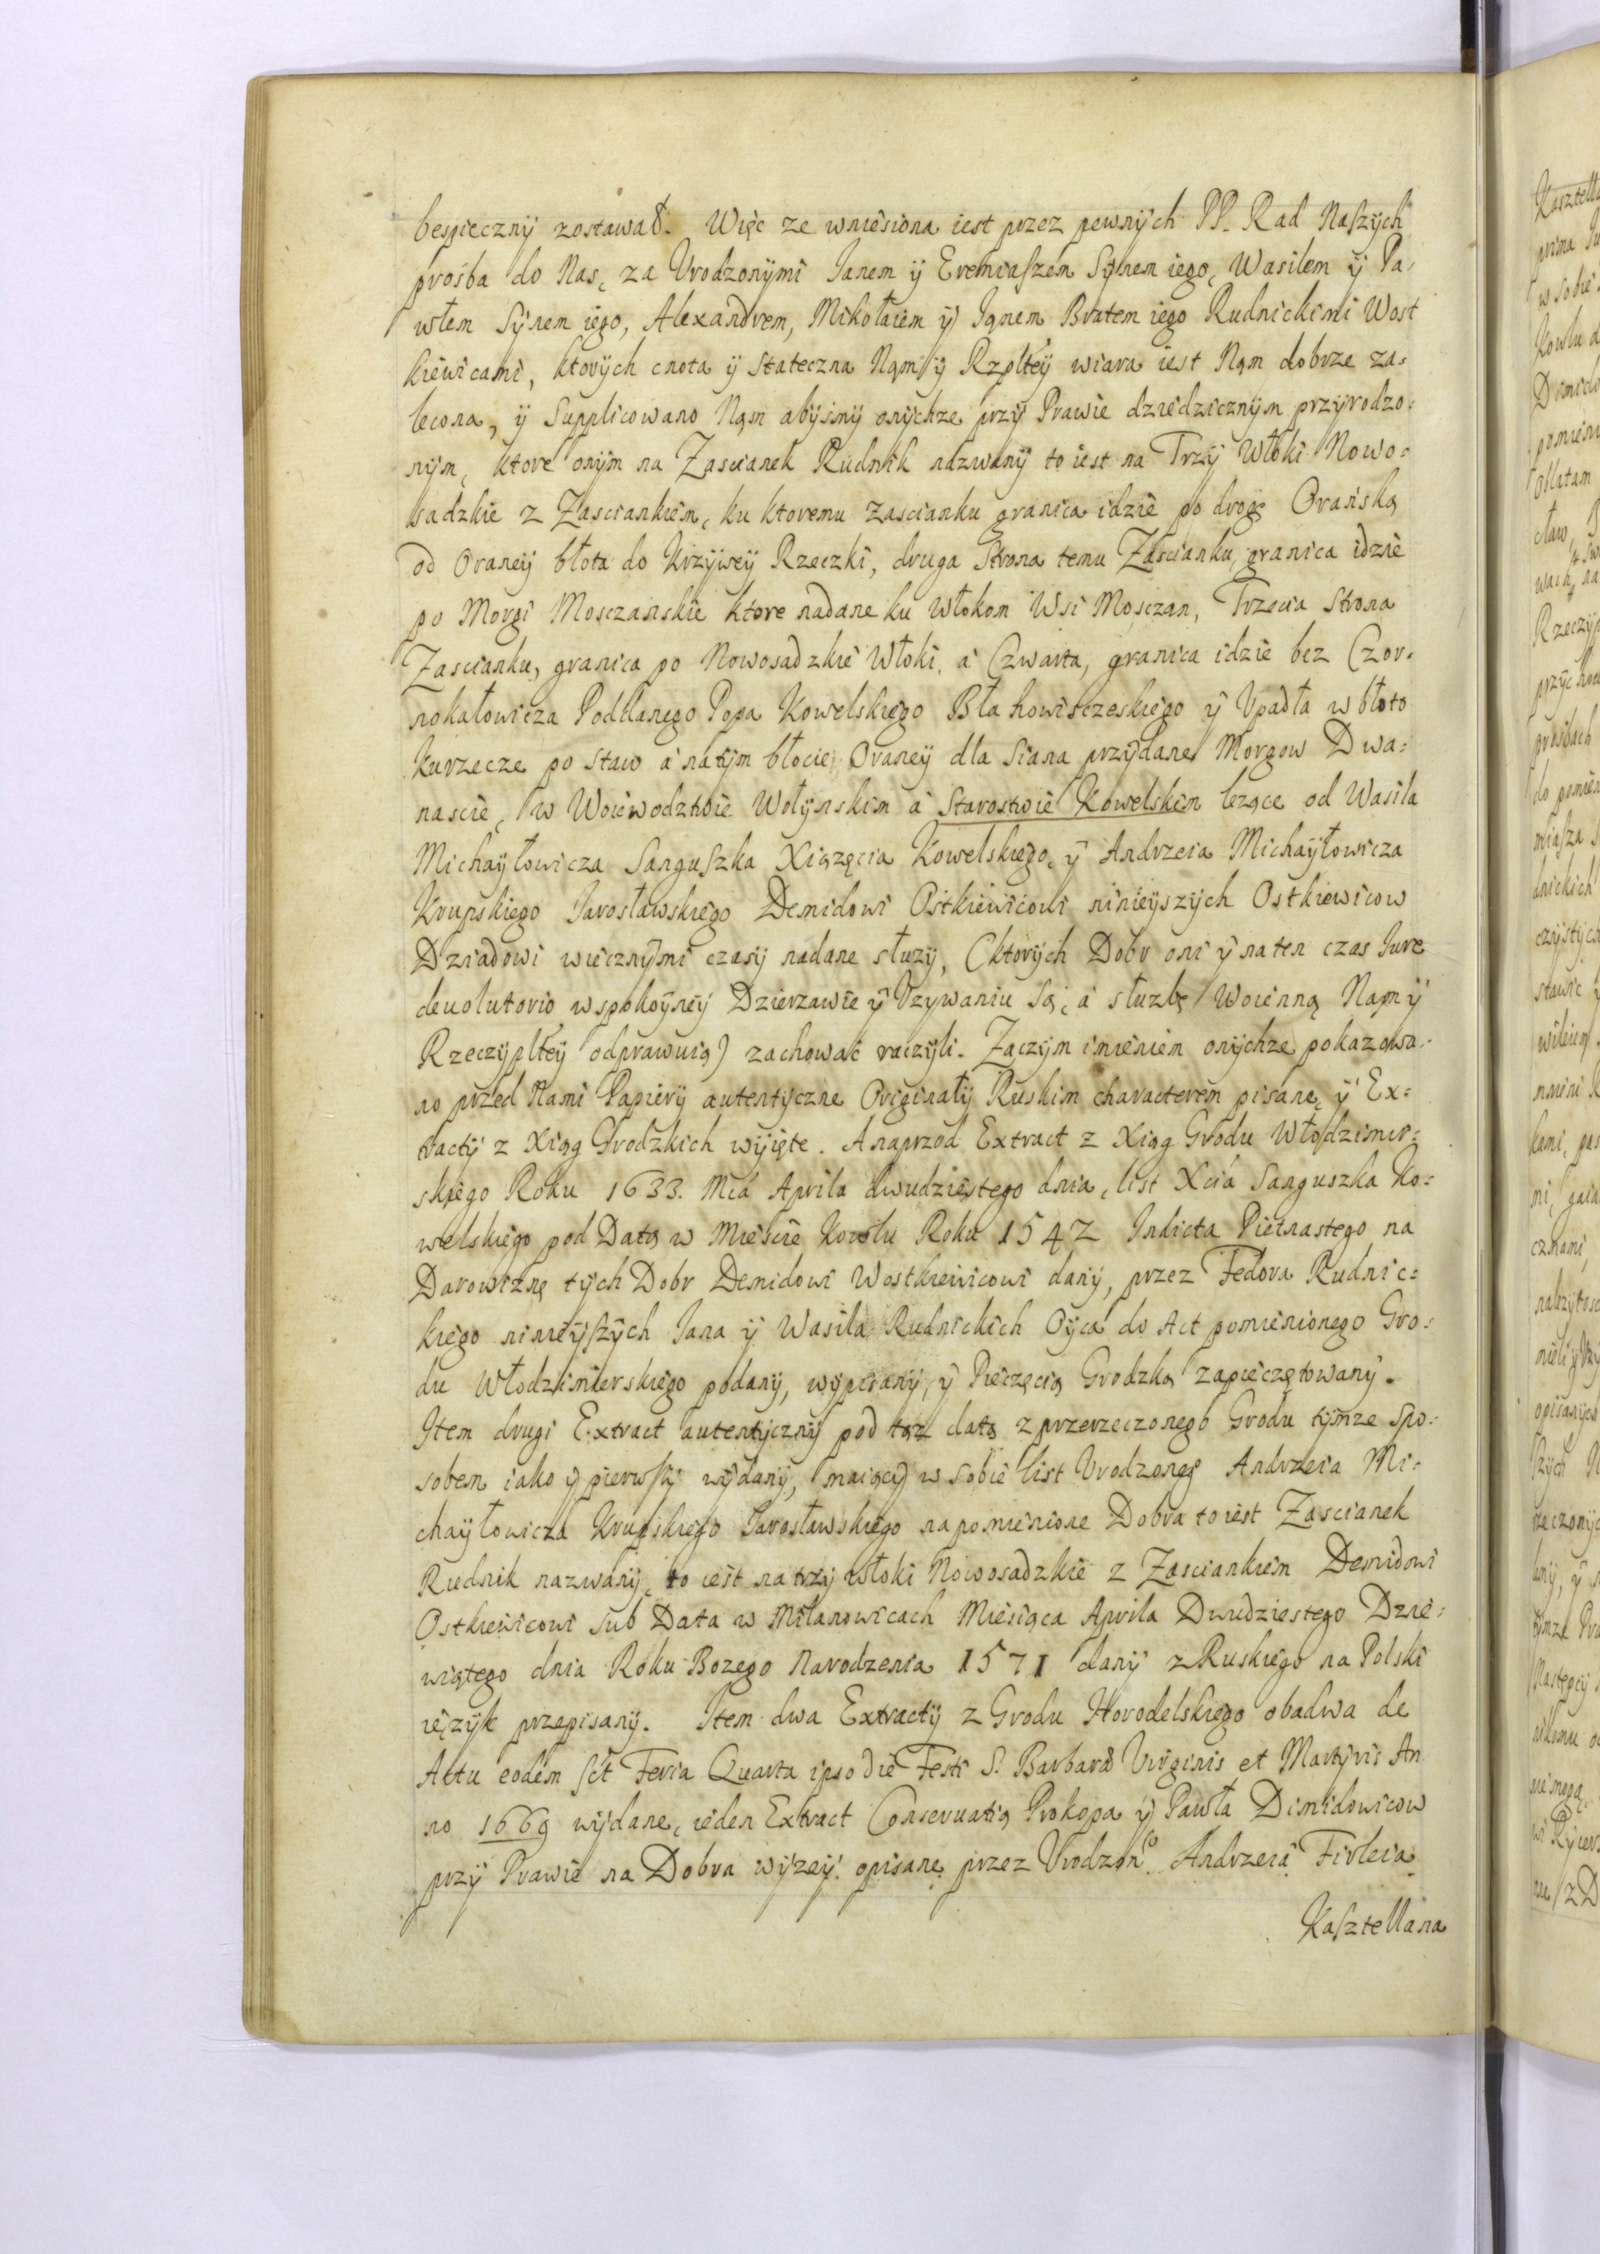 bespieczny zostawał. Więc ze wniesiona iest przez pewnych PP. Rad Naszych
prośba do Nas, za Vrodzonymi Ianem y Eremiaszem Synem iego, Wasilem y Pa-
włem Synem iego, Alexandrem, Mikołaiem y Iąnem Bratem iego Rudnickimi Wost
kiewicami, ktorych cnota y stateczna Nąm y Rzpltey wiara iest Nąm dobrze za-
lecona, y Supplicowano Nąm abyśmy onychze przy Prawie dziedzicznym przyrodzo-
nym, ktore onym na Zascianek Rudnik nazwany to iest na Trzy Włoki Nowo-
sadzkie z Zasciankiem, ku ktoremu zascianku granica idzie po drogę Orańską
od Oraney błota do Krzywey Rzeczki, druga Strona temu Zascianku, granica idzie
po Morgi Mosczańskie ktore nadane ku włokom Wsi Mosczan, Trzecia Strona
Zascianku, granica po Nowosadzkie Włoki, a Czwarta, granica idzie bez Czor-
nokałowicza Poddanego Popa Kowelskiego Błahowisczeskiego y Vpadła w błoto
Kurzecze po staw a natym błocie Oraney dla siana przydane Morgow Dwa-
nascie, w Woiewodztwie Wołynskim a Starostwie Kowelskim lezące od Wasila
Michayłowicza Sanguszka Xiązęcia Kowelskiego, y Andrzeia Michayłowicza
Krupskiego Iarosławskiego Demidowi Ostkiewicowi ninieyszych Ostkiewicow
Dziadowi wiecznymi czasy nadane słuzy, (ktorych Dobr oni y na ten czas Iure
deuolutorio w spokoyney Dzierzawie y Vzywaniu są, a słuzbę Woienną Nam y
Rzeczypltey odprawuią) zachować raczyli. Zaczym imieniem onychze pokazowa-
no przed Nami Papiery autentyczne Originały Ruskim characterem pisane, y Ex-
tracty z Xiąg Grodzkich wyięte. A naprzod Extract z Xiąg Grodu Włodzimir-
skiego Roku 1633. Mcá Aprila dwudziestego dnia, list Xciá Sanguszka Ko-
welskiego pod Datą w Mieście Kowlu Roku 1542 Indicta Pietnastego na
Darowiznę tych Dobr Demidowi Wostkiewicowi dany, przez Fedora Rudnic-
kiego ninieyszych Iana y Wasila Rudnickich Oyca do Act pomienionego Gro-
du Włodzimierskiego podany, wypisany, y Pieczęcią Grodzką zapieczętowany.
Item drugi Extract autentyczny pod tąz datą z przerzeczonego Grodu tymze spo-
sobem iako y pierwszy wydany, maiący w sobie list Vrodzonego Andrzeia Mi-
chayłowicza Krupskiego Iarosławskiego na pomienione Dobra to iest Zascianek
Rudnik nazwany, to iest na trzy włoki Nowosadzkie z Zasciankiem Demidowi
Ostkiewicowi Sub Data w Milanowicach Miesiąca Aprila Dwudziestego Dzie-
wiątego dnia Roku Bozego Narodzenia 1571 dany z Ruskiego na Polski
ięzyk przepisany. Item dwa Extracty z Grodu Horodelskiego obadwa de
Actu eodem sct Feria Quarta ipso die Festi S. Barbara Virginis et Martyris An
no 1669 wydane, ieden Extract Conseruatią Prokopa y Pawła Dimidowicow
przy Prawie na Dobra wyzey opisane przez Vrodzon° Andrzeia Firleia
Kasztellana